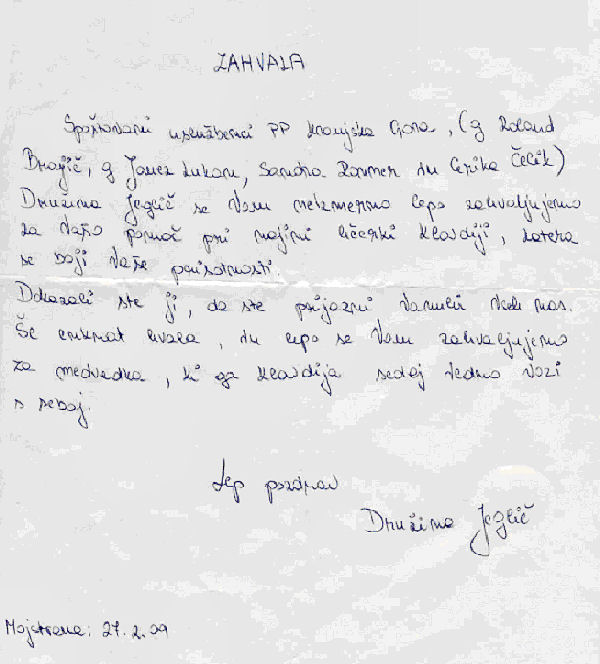 ZAHVALA
Spoštovani uslužbenci PP Kranjska Gora, (g Roland
g Janez Lukan, Sandra in Erika Čelik)
Družina Jeglič se Vam neizmerno lepo zahvaljujemo
za Vašo pomoč pri najini hčerki Klavdiji, katera
se boji Vaše prisotnosti.
Dokazali ste ji, da ste prijazni Varuhi vseh nas.
Še enkrat hvala, in lepo se Vam zahvaljujemo
za medvedka, ki ga Klavdija sedaj vedno vozi
s seboj.
Lep pozdrav
Družina Jeglič
Mojstrana: 27.2.09